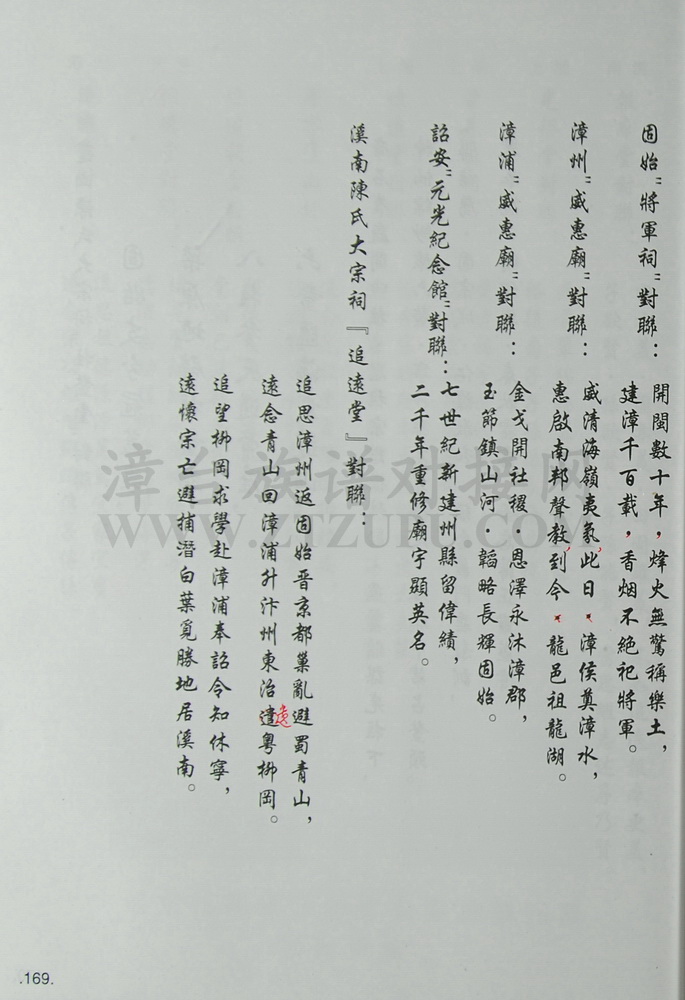 固始"將軍祠"對聯：
開閩數十年，烽火無驚稱樂土，
建漳千百載，香烟不絕祀將軍。
漳州"威惠廟"對聯：
威清海嶺夷氛，此日·漳侯奠漳水，
惠啟南邦聲教，到今·龍邑祖龍湖。
漳浦"威惠廟"對聯：
金戈開社稷·恩澤永沐漳郡，
玉節鎮山河·韜略長輝固始。
詔安"元光紀念館"對聯：
七世紀新建州縣留偉績，
二千年重修廟宇顯英名。
溪南陳氏大宗祠『追遠堂』對聯：
追思漳州返固始晋京都巢亂避蜀青山，
遠念青山回漳浦升汴州東治遣粤柳岡。
遠
追望柳岡求學赴漳浦奉詔令知休寧，
遠懷宗亡避捕潛白葉覓勝地居溪南。
漳台族谱对接网
WWW.ZTZUPU.COM
.169.